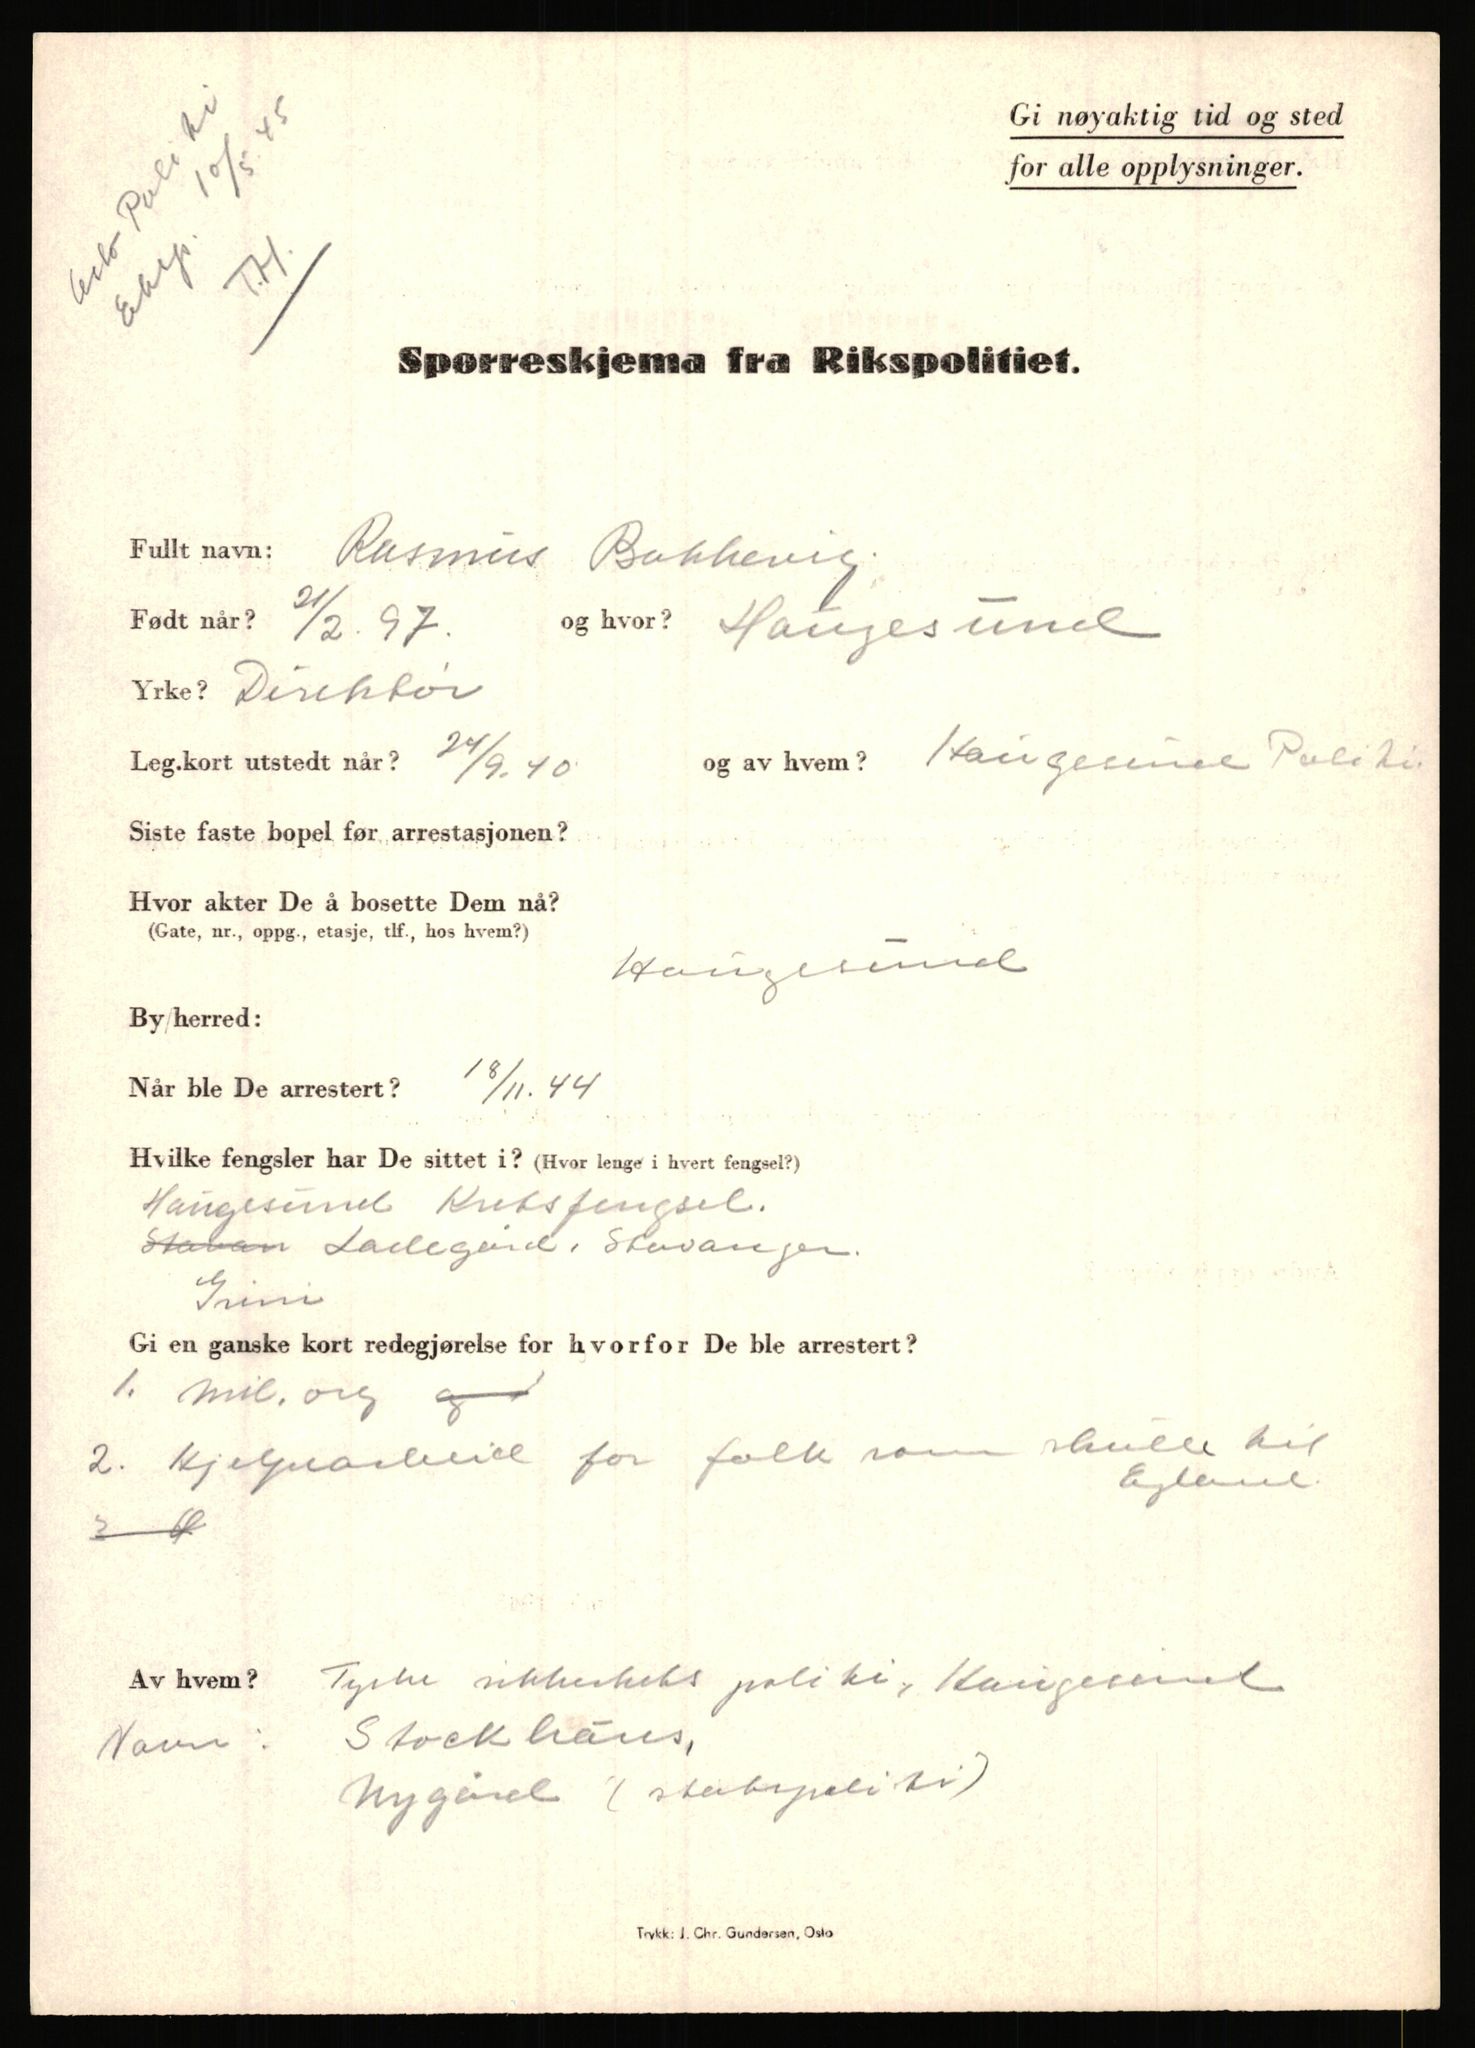 Oslo Politi
Eksp. 10/5 45
T.H.
Gi nøyaktig tid og sted
for alle opplysninger.
Spørreskjema fra Rikspolitiet.
Fullt navn: Rasmus Bakkevig.
Født når? 21/2. 97. og hvor? Haugesund
Yrke? Direktør
Leg.kort utstedt når? 24/9. 40 og av hvem? Haugesund Politi.
Siste faste bopel før arrestasjonen?
Hvor akter De å bosette Dem nå?
(Gate, nr., oppg., etasje, tlf., hos hvem?)
Haugesund
By/herred:
Når ble De arrestert? 18/11. 44
Hvilke fengsler har De sittet i? (Hvor lenge i hvert fengsel?)
Haugesund Kretsfengsel.
Stavan Ladegård, Stavanger.
Grini
Gi en ganske kort redegjørelse for hvorfor De ble arrestert?
1. Mil. org
2. Hjelpearbeid for folk som skulle til
England.
Av hvem? Tyske sikkerhets politi, Haugesund
Navn: Stockhaus,
Nygård (statspoliti)
Trykk: J. Chr. Gundersen, Oslo